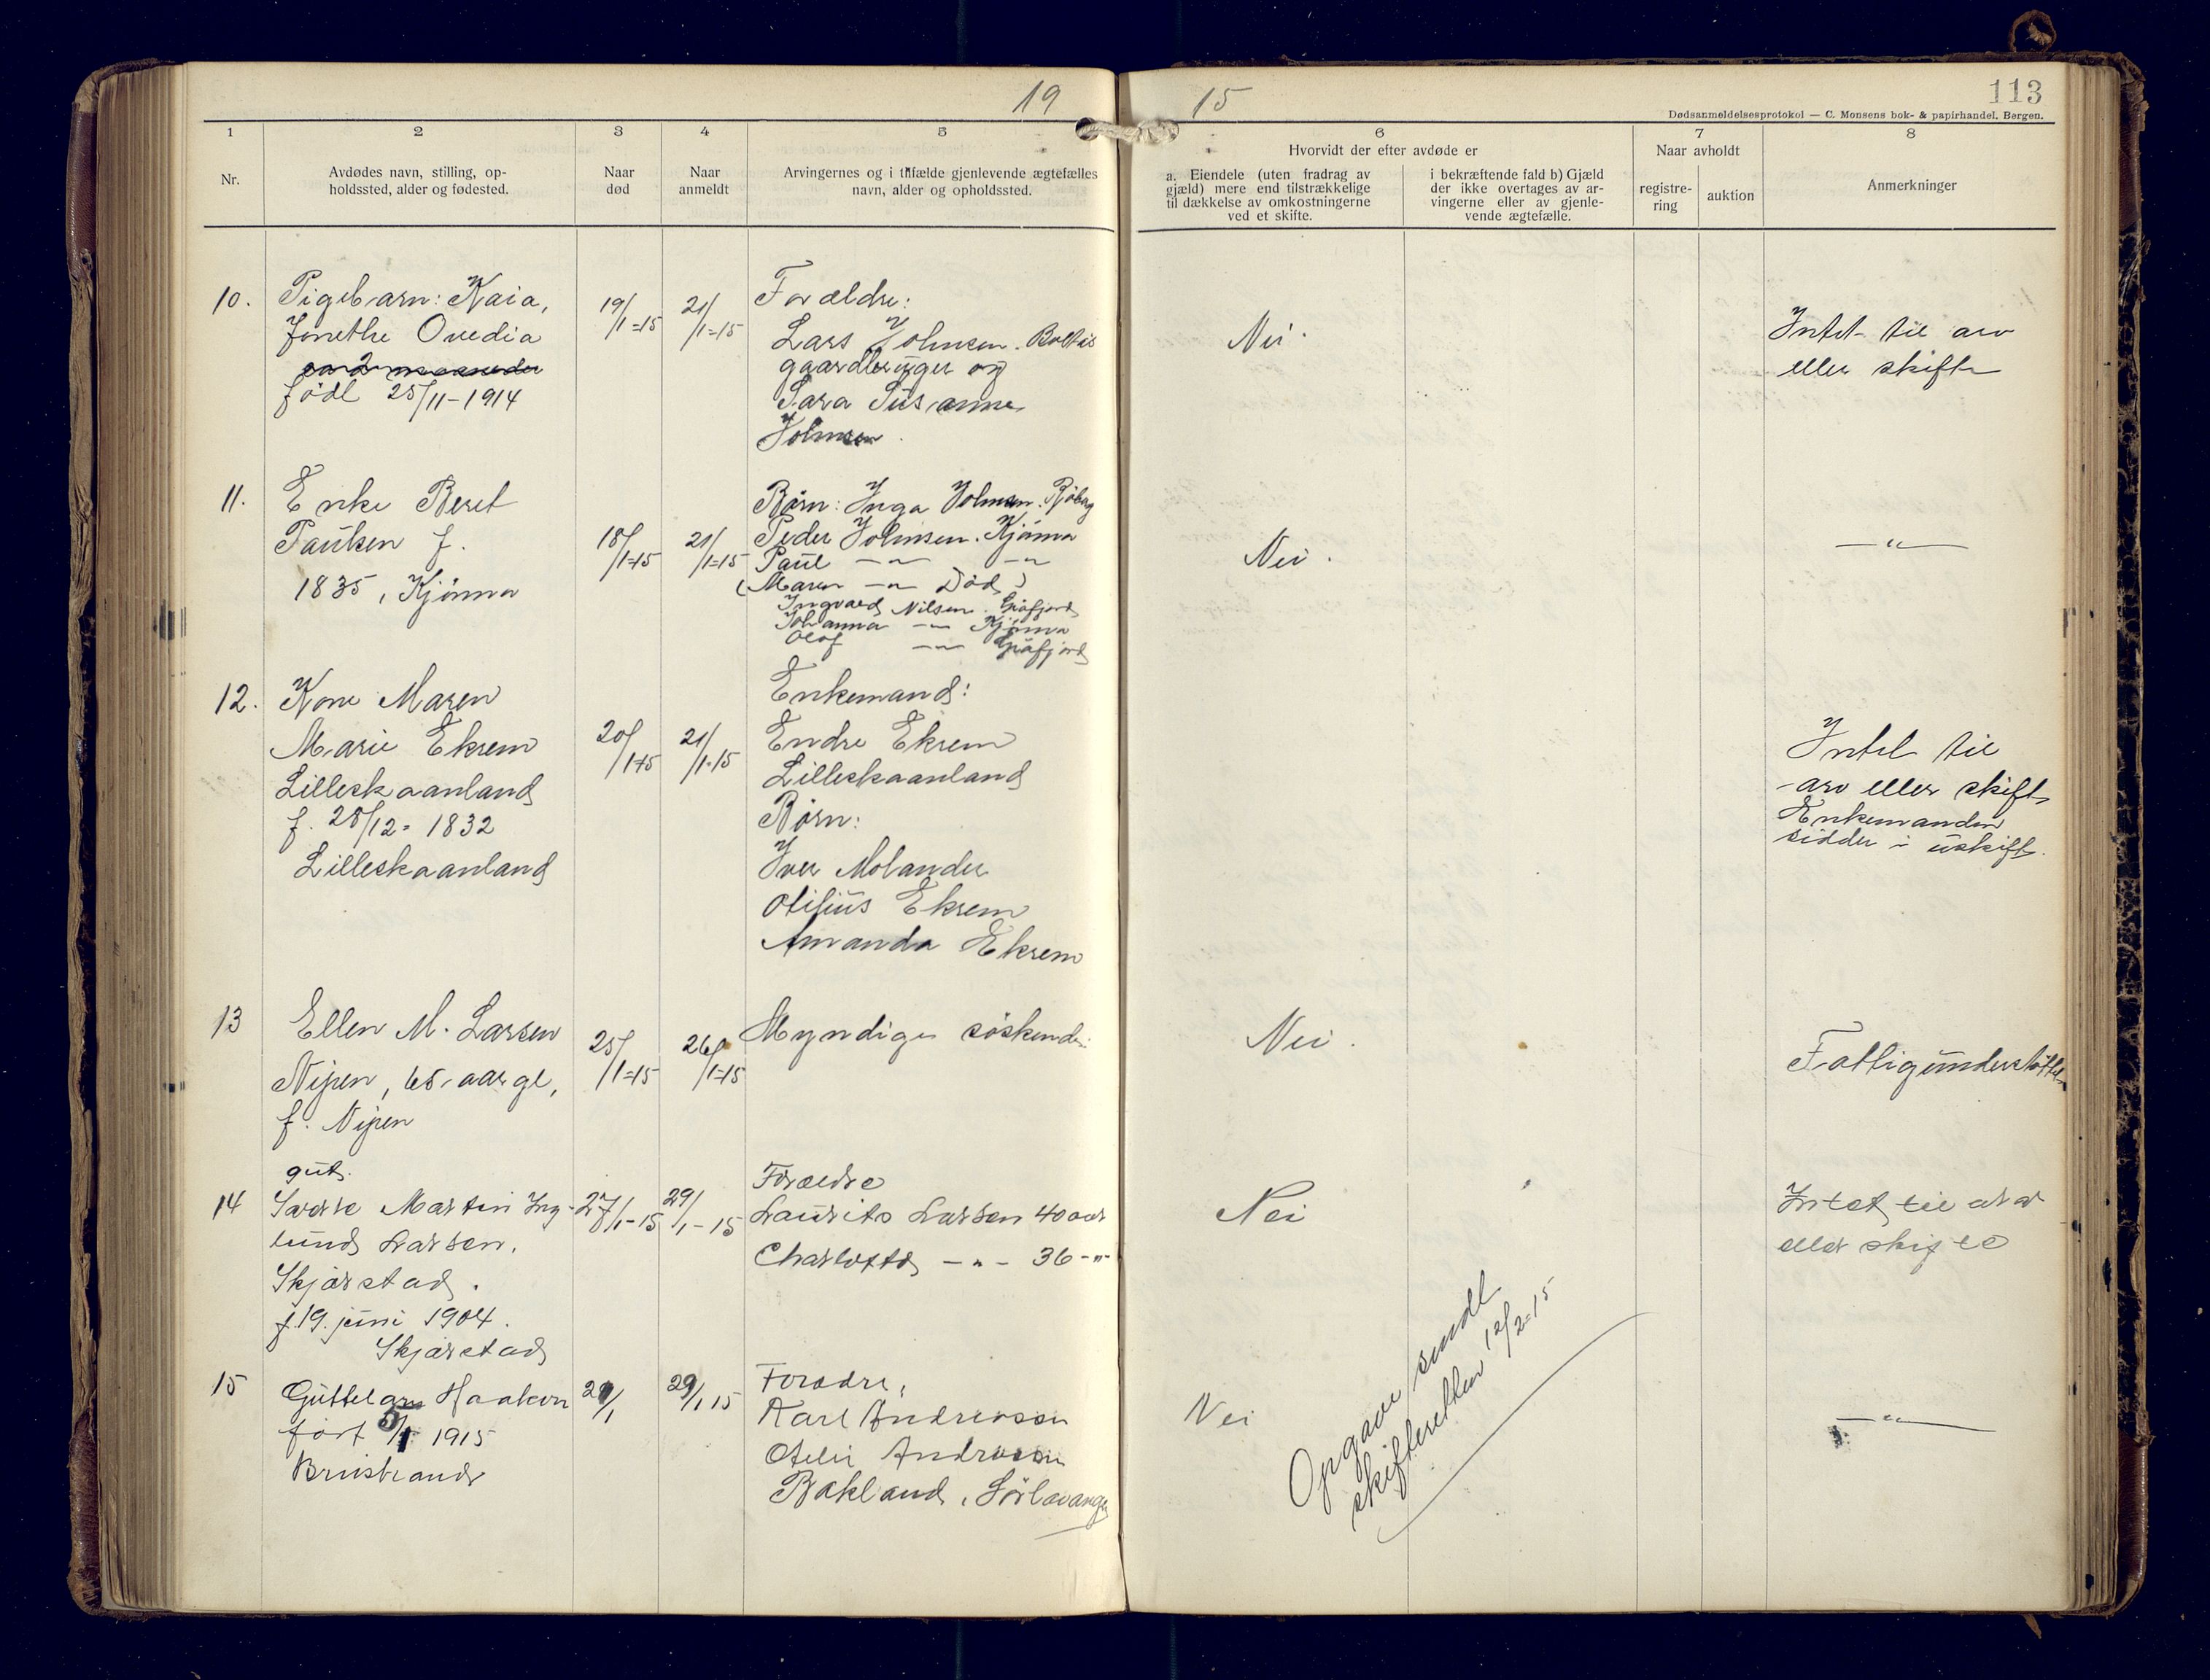 19
15
113
Dødsanmeldelsesprotokol — C. Monsens bok- & papirhandel, Bergen.
1
2
3
4
5
6
7
8
Nr.
Avdødes navn, stilling, op-
holdssted, alder og fødested.
Naar
død
Naar
anmeldt
Arvingernes og i tilfælde gjenlevende ægtefælles
navn, alder og opholdssted.
Hvorvidt der efter avdøde er
a. Eiendele (uten fradrag av
gjæld) mere end tilstrækkelige
til dækkelse av omkostningerne
ved et skifte.
i bekræftende fald b) Gjæld
der ikke overtages av ar-
vingerne eller av gjenle-
vende ægtefælle.
Naar avholdt
registre-
ring
auktion
Anmerkninger
10.
Pigebarn: Kaia,
Jonethe Ovedia
født 25/11-1914
19/1=15
21/1=15
Forældre:
Lars Johnsen.
gaardbruger og
Sara Susanne
Johnsen.
Nei.
Intet til arv
eller skifte
11.
Enke Beret
Paulsen f.
1835, Kjønna
18/1=15
21/1=15
Børn: Inga Johnsen.
Peder Johnsen. Kjønna
Paul —"— —"
(Maren —"— Død)
Ingvald Nilsen. Gåsfjord
Johanna —"— Kjønna
Olof —"— Gåsfjord
Nei.
—"—
12.
Kone Maren
Marie Ekrem
Lilleskaanland
f. 28/12=1832
Lilleskaanland
20/1=15
21/1-15
Enkemand:
Endre Ekrem
Lilleskaanland
Børn:
Iver Molander
Otilius Ekrem
Amanda Ekrem
Intet til
arv eller skifte
Enkemanden
sidder i uskifte.
13
Ellen M. Larsen
Nipen, 65 aar gl,
f. Nipen
25/1=15
26/1=15
Myndige søskende.
Nei.
Fattigunderstøttet
14
gut.
Sverre Martin Ing-
lund Larsen.
Skjærstad.
f. 19. juni 1904.
Skjærstad
27/1-15
29/1-15
Forældre
Laurits Larsen 40 aar
Charlotte —"— 36 —"—
Nei
Intet til arv
eller skifte
15
Guttebarn Haakon
født 5/1 1915
Brustrand
29/1
29/1 15
Forældre,
Karl Andreasen
Otelie Andreasen
Bakland, Sørlavangen
Nei
—"—
Opgave sendt
skifteretten 12/2=15